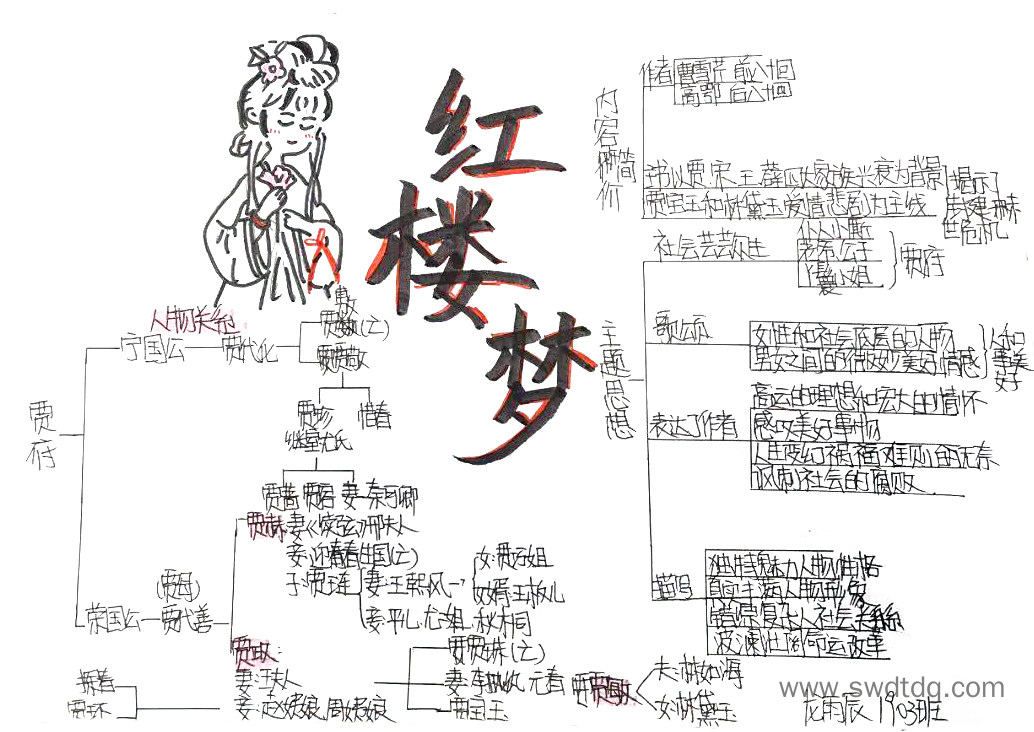 红
楼
梦
内容简介
作者
曹雪芹 前八十回
高鹗 后八十回
书以贾 宋 王 薛四大家族兴衰为背景
贾宝玉和林黛玉爱情悲剧为主线
揭示了
封建末
世危机
主题思想
社会芸芸众生
仆人小厮
老爷公子
丫鬟小姐
贾府
歌公页
女性和社会底层的人物
男女之间的微妙美好情感
人和
事美
好
表达了作者
高远的理想和宏大的情怀
感叹美好事物
人生变幻祸福难测的无奈
讽刺社会的腐败
描写
独特魅力人物性格
真实丰满人物形像
错综复杂人社会关系
波澜壮阔命运改革
人物关系
贾府
宁国公
贾代化
贾敷(亡)
贾敬
贾珍
继室尤氏
惜春
贾蔷 贾蓉 妻:秦可卿
荣国公
(贾母)
贾代善
贾赦
妻《续弦》邢夫人
妾:迎春生国(亡)
子:贾琏
妻:王熙凤
女:贾巧姐
女婿:王板儿
妾:平儿 尤姐 秋桐
贾政:
妻:王夫人
妾:赵姨娘 周姨娘
探春
贾环
贾珠(亡)
妻:李纨 元春
贾宝玉
贾敏
夫:林如海
女:林黛玉
www.swdtdq.com
龙雨辰 1903班